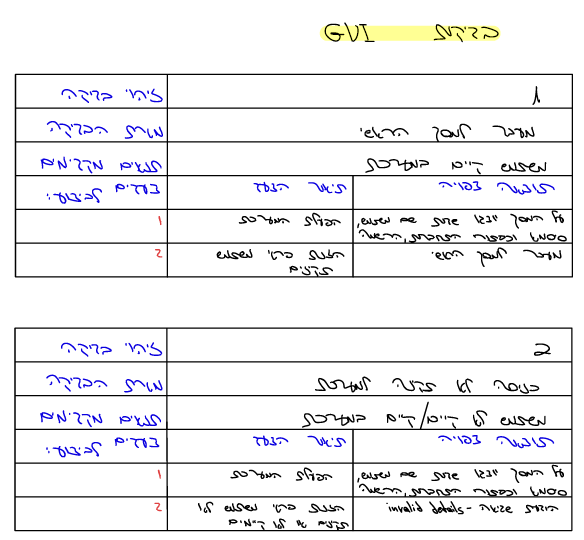 בדיקות GUI
זיהוי בדיקה 1
מטרת הבדיקה מעבר למסך הראשי.
תנאים מקדימים משתמש קיים במערכת
צעדים לביצוע: תיאור הצעד תוצאה צפויה
1 הפעלת המערכת על המסך יוצגו שדות שם משתמש,
סיסמא וכפתור התחברות, הרשמה
2 הזנת פרטי משתמש מעבר למסך הראשי.
תקינים
זיהוי בדיקה 2
מטרת הבדיקה כניסה לא תקינה למערכת
תנאים מקדימים משתמש לא קיים/קיים במערכת
צעדים לביצוע: תיאור הצעד תוצאה צפויה
1 הפעלת המערכת על המסך יוצגו שדות שם משתמש,
סיסמא וכפתור התחברות, הרשמה
2 הזנת פרטי משתמש לא הודעת שגיאה - invalid details
תקינים או לא קיימים